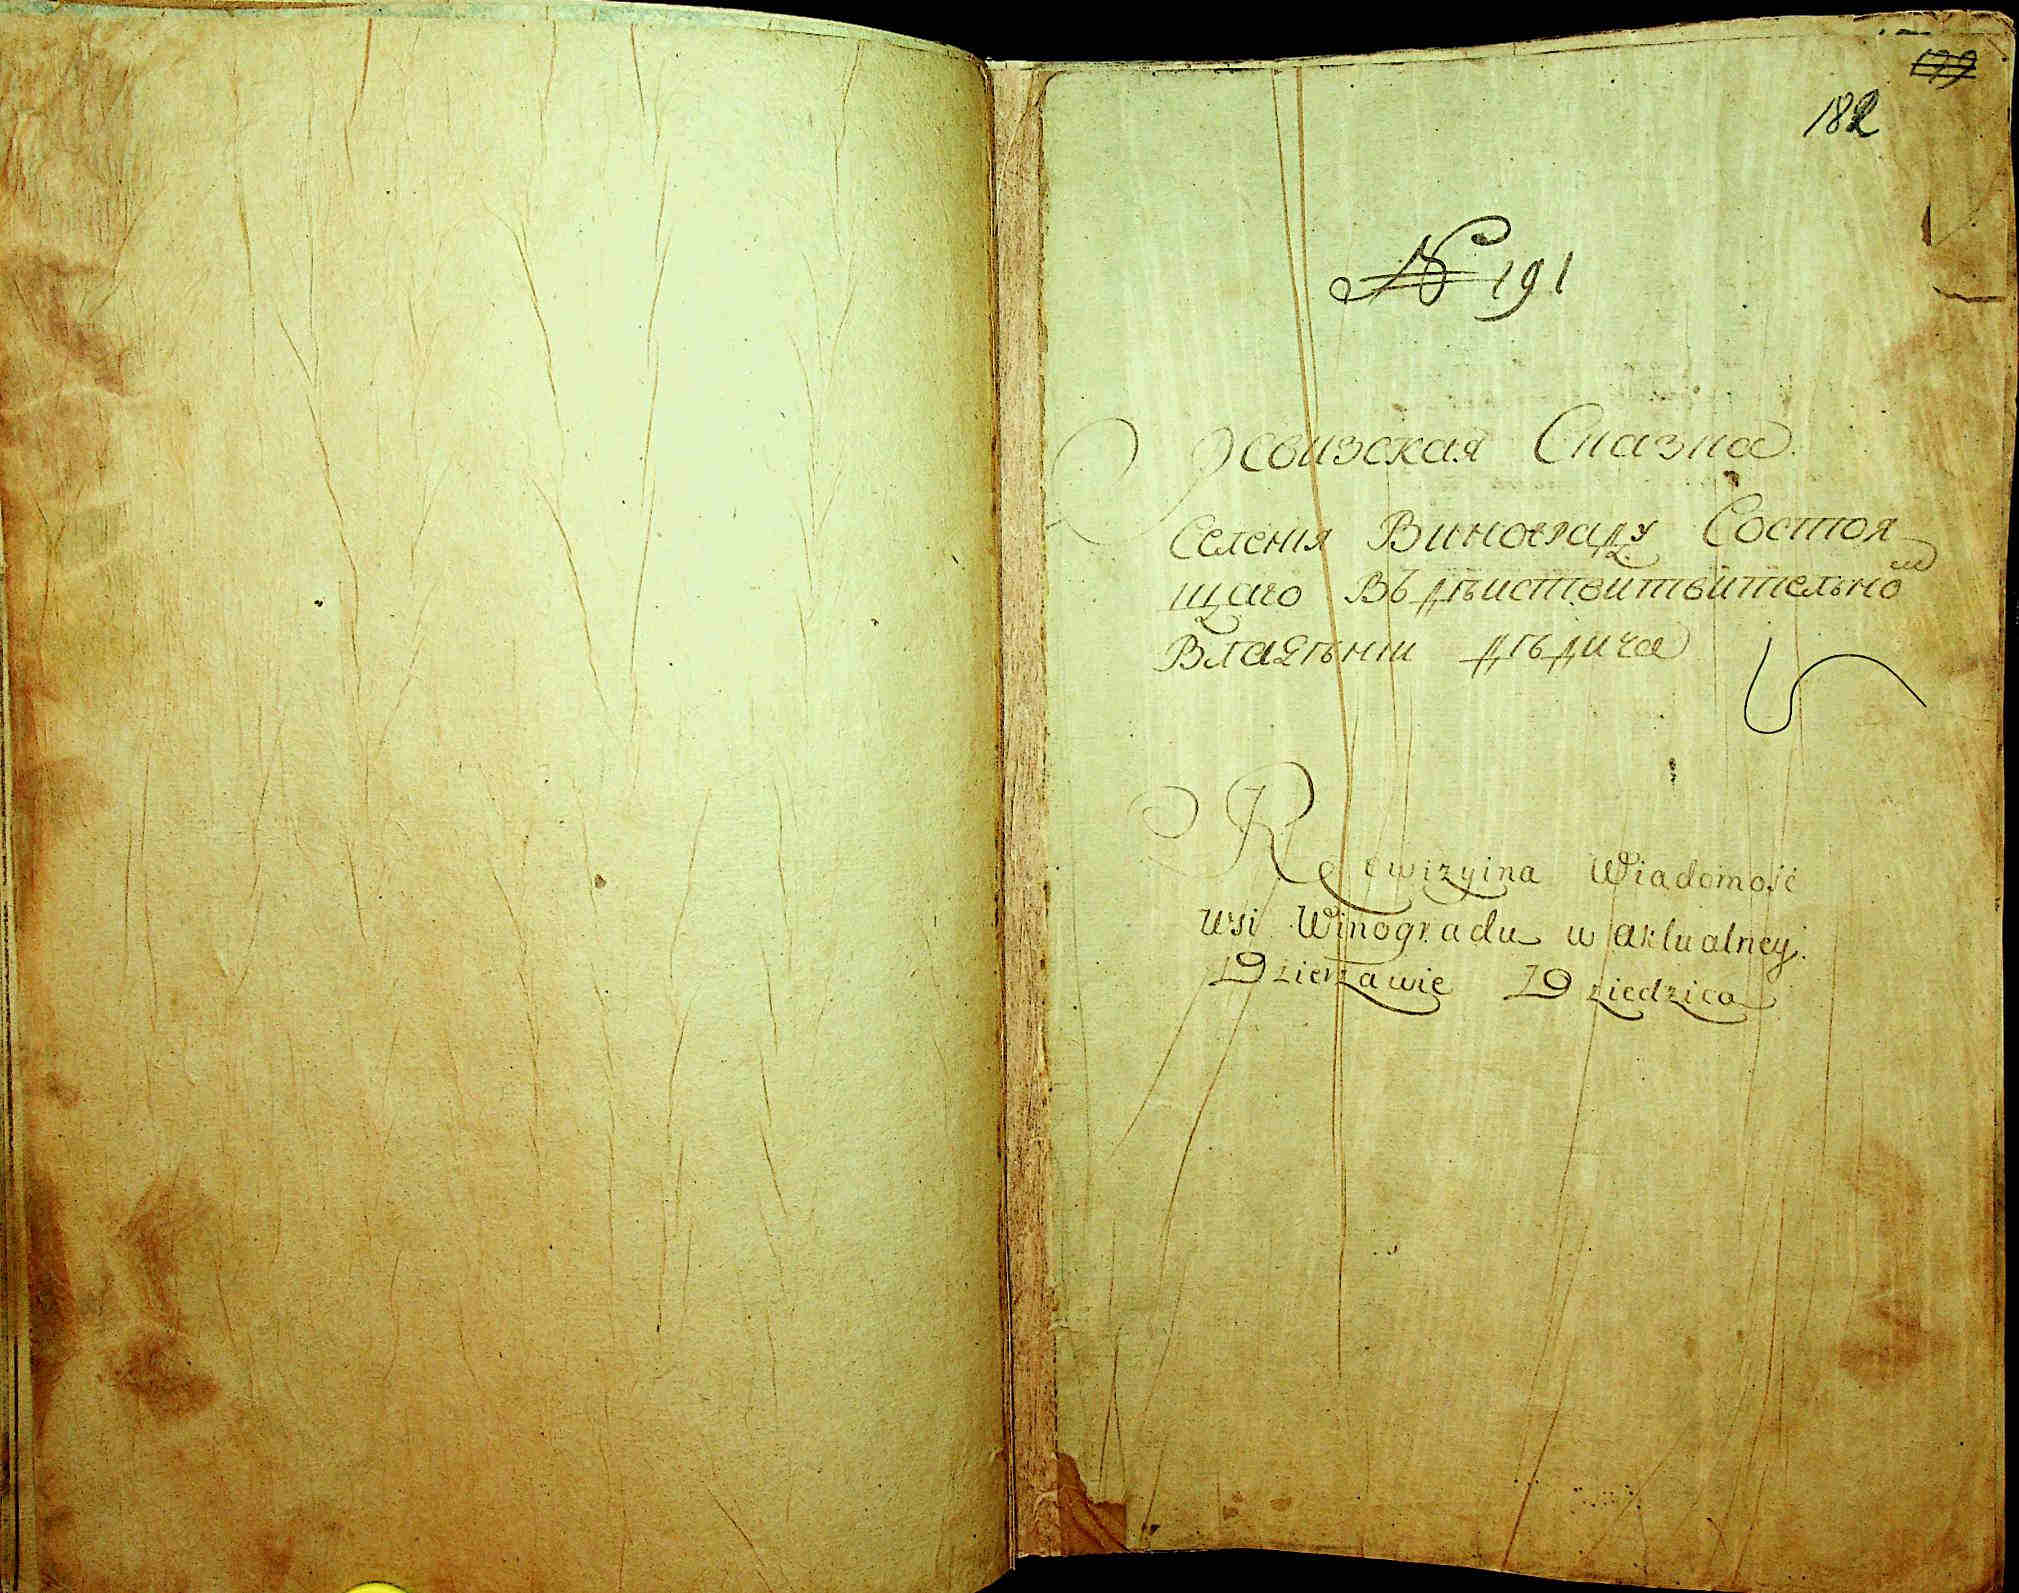 182
№ 191
Ревизская Сказка
Селения Винограду Состоя
щаго Въ дѣиствитвительном
Владѣнии дѣдича
Rewizyina Wiadomość
wsi Winogradu w aktualney
Dzierzawie Dziedzica